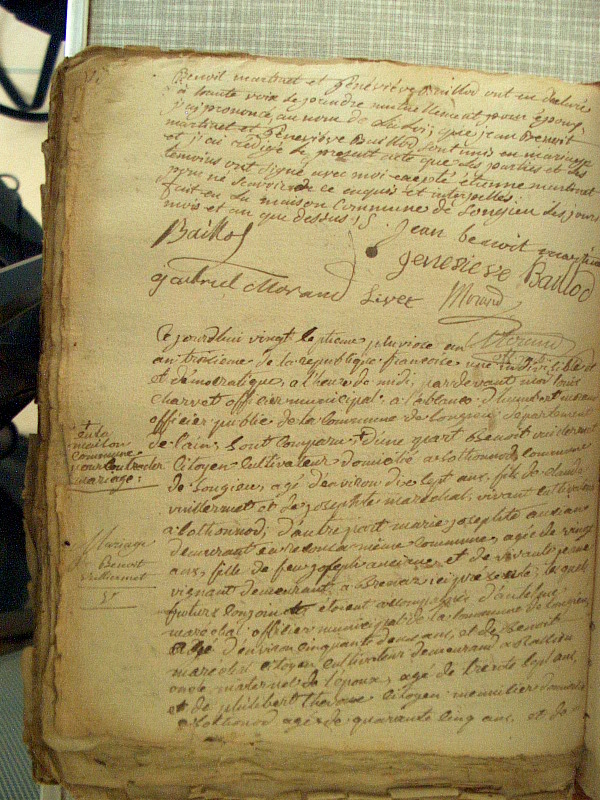 Benoit martinet et Géneviève Baillod ont en declaré
à haute voix se prendre mutuellement pour époux
j'ai prononcé au nom de la Loi, que jean Benoit
martinet et Géneviève Baillod sont unis en mariage
et j'ai rédigé le present acte que les parties et les
temoins ont signé avec moi excepté étienne martinet
pour ne scavoir de ce enquis et interpellé
fait en la maison Commune de Songieu les jours
mois et an que dessus
Baillod jean benoit martinet
genevieve Baillod
gabriel Morand Livet Morand
Morand
Ce jourdhui vingt septieme pluviose an
an troisieme de la republique francoise une indivisible et
et démocratique, a l'heure de midi, pardevant moi louis
Charvet officier municipal a l'absence
officier public de la Commune de Songieu departement
de l'ain, Sont Comparu d'une part Benoit vuillermet
Citoyen Cultivateur domicilié a lothonnod, commune
de Songieu, agé denviron dix sept ans, fils de claude
vuillermet et de josephte marechal, vivant cultivateur
a lothonnod; d'autre part marie josephte
demeurant en la même commune, agée de vingt
ans, fille de feu joseph et de vivante jeanne
vignant demeurant a Brenaz ici présente; lesquels
futurs Conjoints étoient accompagnés d'antelme
marechal officier municipal de la commune de Songieu
agé d'environ cinquante deux ans, et de Benoit
marechal Citoyen Cultivateur demeurant a
oncle maternel de l'epoux, agé de trente sept ans,
et de philibert thevenet Citoyen menuisier domicilié
a lothonod agé de quarante cinq ans, et de
en la
maison
Commune
pour Contracter
mariage:
Mariage
Benoit
vuillermet